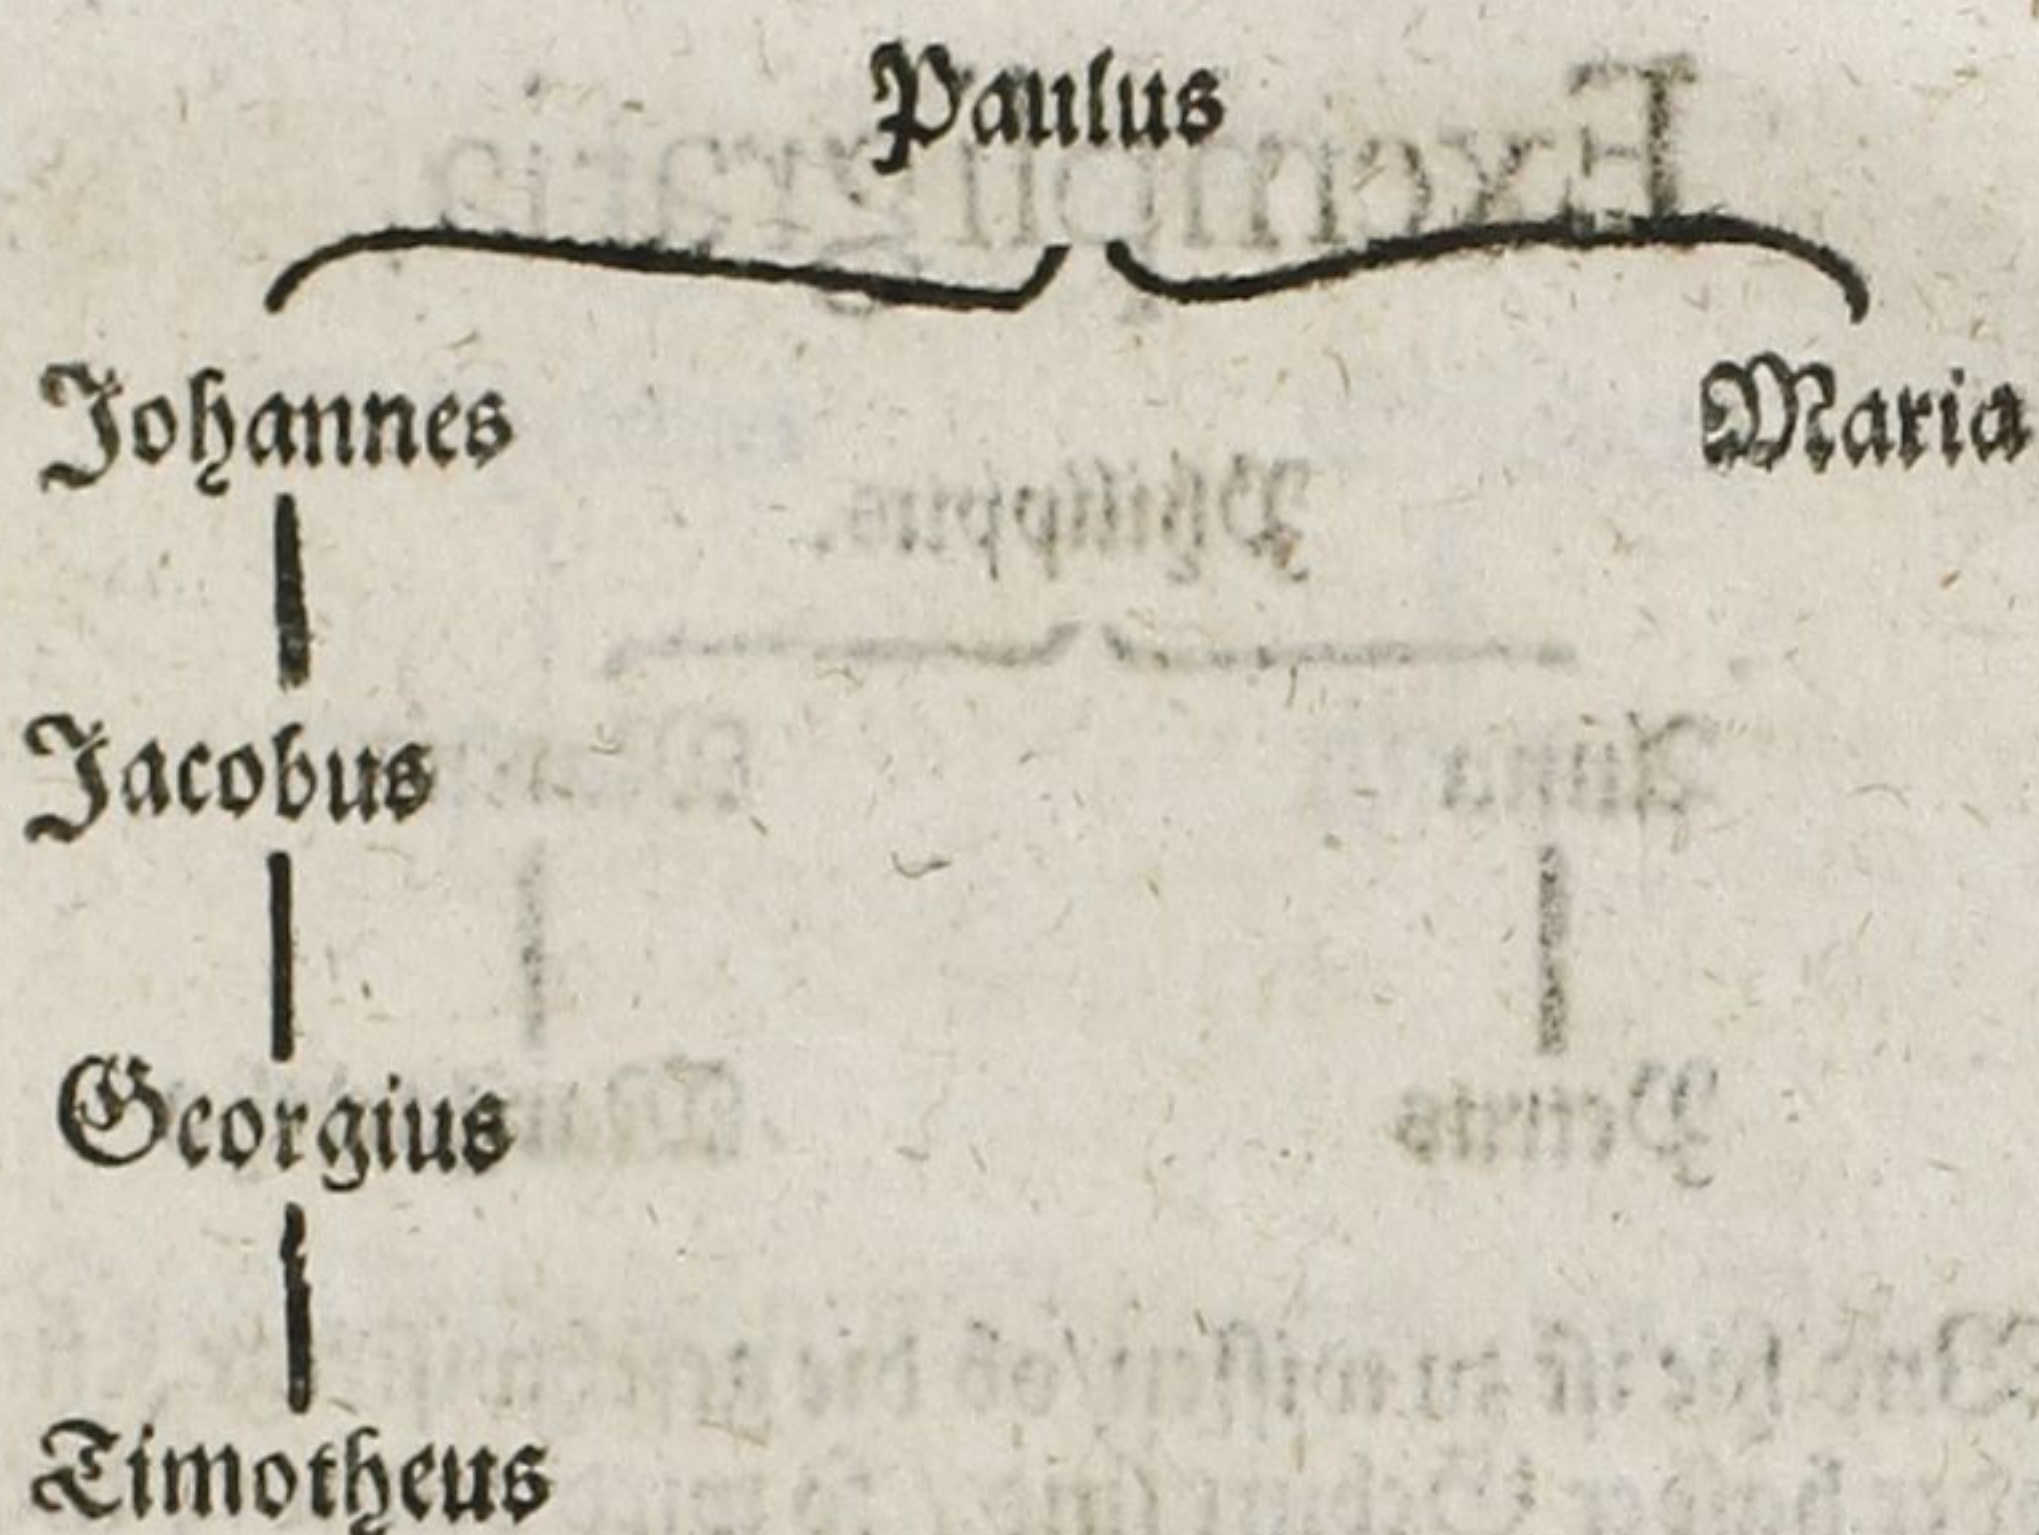 Paulus
Johannes Maria
Jacobus
Georgius
Timotheus